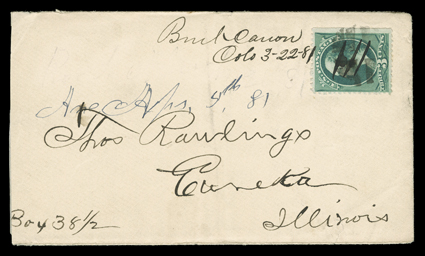 Bush Canon
Colo 3-22-81
Aps. 4th 81
Thos Rawlings
Eureka
Illinois
Box 38 1/2